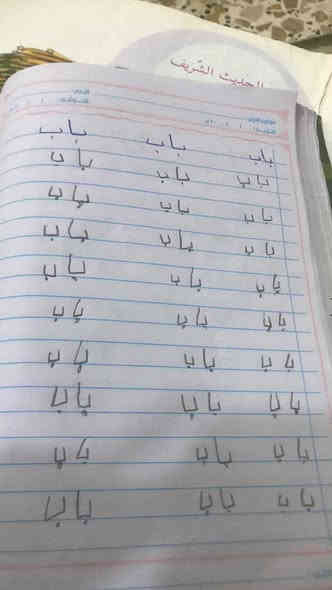 الحديث الشريف
باب باب باب
باب باب باب
باب باب باب
باب باب باب
باب باب باب
باب باب باب
باب باب باب
باب باب باب
باب باب باب
باب باب باب